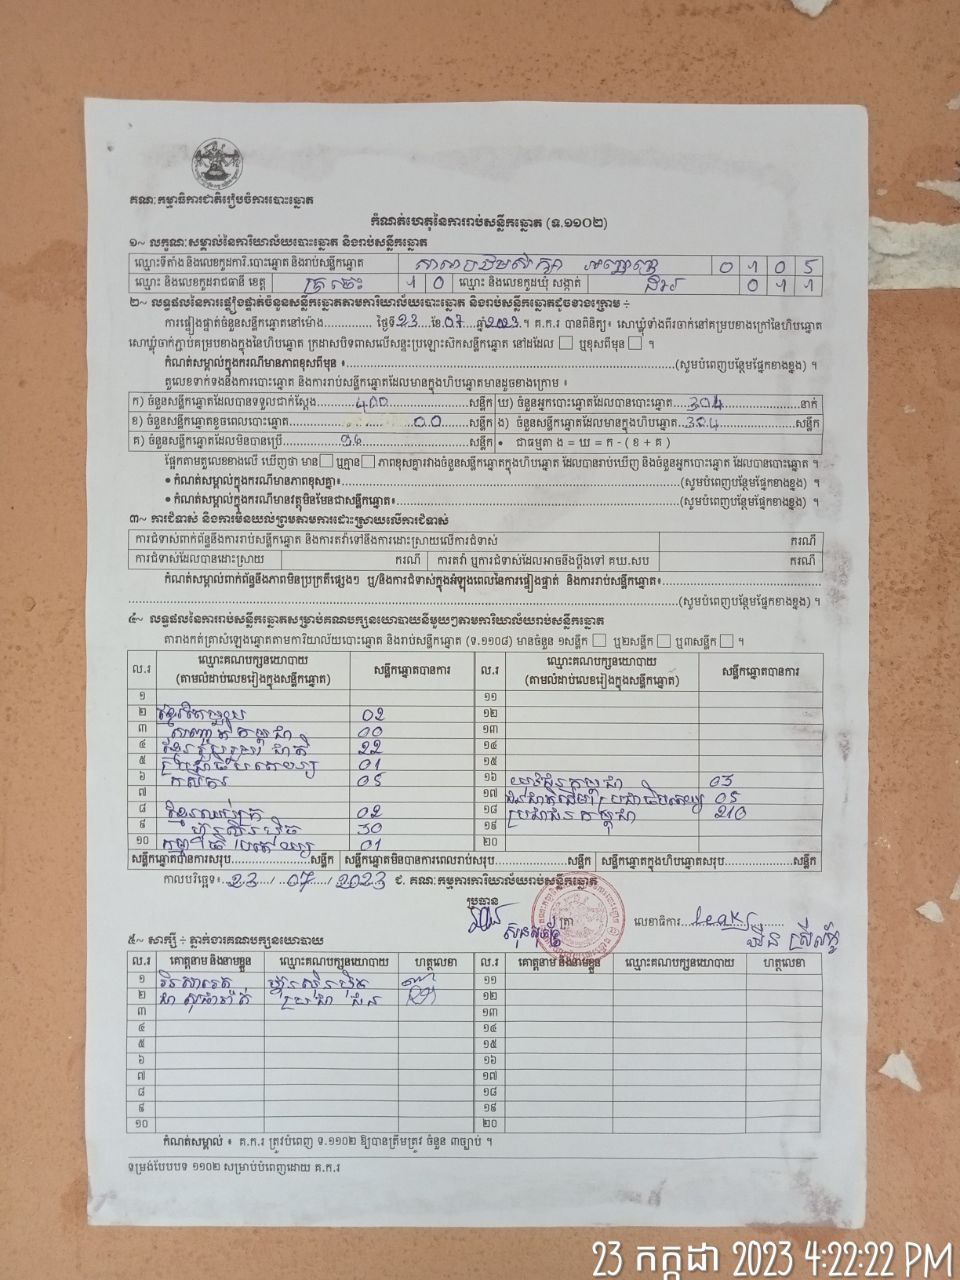 គណៈកម្មាធិការជាតិរៀបចំការបោះឆ្នោត
កំណត់ហេតុនៃការរាប់សន្លឹកឆ្នោត (ទ.១១០២)
១~ លក្ខណៈសម្គាល់នៃការិយាល័យបោះឆ្នោត និងរាប់សន្លឹកឆ្នោត
ឈ្មោះទីតាំង និងលេខកូដការិ.បោះឆ្នោត និងរាប់សន្លឹកឆ្នោត សាលាបឋមសិក្សា 0 1 0 5
ឈ្មោះ និងលេខកូដរាជធានី ខេត្ត ក្រចេះ 1 0 ឈ្មោះ និងលេខកូដឃុំ សង្កាត់ 0 1 1
២~ លទ្ធផលនៃការផ្ទៀងផ្ទាត់ចំនួនសន្លឹកឆ្នោតតាមការិយាល័យបោះឆ្នោត និងរាប់សន្លឹកឆ្នោតដូចខាងក្រោម ÷
ការផ្ទៀងផ្ទាត់ចំនួនសន្លឹកឆ្នោតនៅម៉ោង.............. ថ្ងៃទី23 ខែ07 ឆ្នាំ2023។ គ.ក.រ បានពិនិត្យ៖ សោឃ្លុំទាំងពីរចាក់នៅគម្របខាងក្រៅនៃហិបឆ្នោត
សោឃ្លុំចាក់ភ្ជាប់គម្របខាងក្នុងនៃហិបឆ្នោត ក្រដាសបិទពាសលើសន្ទះប្រឡោះសិកសន្លឹកឆ្នោត នៅដដែល ☐ ឬខុសពីមុន ☐ ។
កំណត់សម្គាល់ក្នុងករណីមានភាពខុសពីមុន ÷ ......(សូមបំពេញបន្ថែមផ្នែកខាងខ្នង) ។
តួលេខទាក់ទងនឹងការបោះឆ្នោត និងការរាប់សន្លឹកឆ្នោតដែលមានក្នុងហិបឆ្នោតមានដូចខាងក្រោម ៖
ក) ចំនួនសន្លឹកឆ្នោតដែលបានទទួលជាក់ស្តែង 400 សន្លឹក ឃ) ចំនួនអ្នកបោះឆ្នោតដែលបានបោះឆ្នោត 304 នាក់
ខ) ចំនួនសន្លឹកឆ្នោតខូចពេលបោះឆ្នោត 00 សន្លឹក ង) ចំនួនសន្លឹកឆ្នោតដែលមានក្នុងហិបឆ្នោត 304 សន្លឹក
គ) ចំនួនសន្លឹកឆ្នោតដែលមិនបានប្រើ 96 សន្លឹក • ជាធម្មតា ង = ឃ = ក - ( ខ + គ )
ផ្អែកតាមតួលេខខាងលើ ឃើញថា មាន☐ ឬគ្មាន☐ ភាពខុសគ្នារវាងចំនួនសន្លឹកឆ្នោតក្នុងហិបឆ្នោត ដែលបានរាប់ឃើញ និងចំនួនអ្នកបោះឆ្នោត ដែលបានបោះឆ្នោត ។
• កំណត់សម្គាល់ក្នុងករណីមានភាពខុសគ្នា៖ ......(សូមបំពេញបន្ថែមផ្នែកខាងខ្នង) ។
• កំណត់សម្គាល់ក្នុងករណីមានវត្ថុមិនមែនជាសន្លឹកឆ្នោត៖ ......(សូមបំពេញបន្ថែមផ្នែកខាងខ្នង) ។
៣~ ការជំទាស់ និងការមិនយល់ព្រមតាមការដោះស្រាយលើការជំទាស់
ការជំទាស់ពាក់ព័ន្ធនឹងការរាប់សន្លឹកឆ្នោត និងការតវ៉ាទៅនឹងការដោះស្រាយលើការជំទាស់ ករណី
ការជំទាស់ដែលបានដោះស្រាយ ករណី ការតវ៉ា ឬការជំទាស់ដែលអាចនឹងប្តឹងទៅ គឃ.សប ករណី
កំណត់សម្គាល់ពាក់ព័ន្ធនឹងភាពមិនប្រក្រតីផ្សេងៗ ឬ/និងការជំទាស់ក្នុងអំឡុងពេលនៃការផ្ទៀងផ្ទាត់ និងការរាប់សន្លឹកឆ្នោត៖
......(សូមបំពេញបន្ថែមផ្នែកខាងខ្នង) ។
៤~ លទ្ធផលនៃការរាប់សន្លឹកឆ្នោតសម្រាប់គណបក្សនយោបាយនីមួយៗតាមការិយាល័យរាប់សន្លឹកឆ្នោត
តារាងកត់គ្រាសំឡេងឆ្នោតតាមការិយាល័យបោះឆ្នោត និងរាប់សន្លឹកឆ្នោត (ទ.១១០៨) មានចំនួន ១សន្លឹក ☐ ឬ២សន្លឹក ☐ ឬ៣សន្លឹក ☐ ។
ល.រ ឈ្មោះគណបក្សនយោបាយ (តាមលំដាប់លេខរៀងក្នុងសន្លឹកឆ្នោត) សន្លឹកឆ្នោតបានការ ល.រ ឈ្មោះគណបក្សនយោបាយ (តាមលំដាប់លេខរៀងក្នុងសន្លឹកឆ្នោត) សន្លឹកឆ្នោតបានការ
១ ១១
២ ខ្មែរតែមួយ 02 ១២
៣ សញ្ជាតិកម្ពុជា 00 ១៣
៤ ខ្មែររួបរួមជាតិ 22 ១៤
៥ 01 ១៥
៦ កសិករ 05 ១៦ យុវជនកម្ពុជា 03
៧ ១៧ ជនជាតិដើមប្រជាធិបតេយ្យ 05
៨ 02 ១៨ ប្រជាជនកម្ពុជា 210
៩ ហ្វ៊ុនស៊ិនប៉ិច 30 ១៩
១០ 01 ២០
សន្លឹកឆ្នោតបានការសរុប......សន្លឹក សន្លឹកឆ្នោតមិនបានការពេលរាប់សរុប......សន្លឹក សន្លឹកឆ្នោតក្នុងហិបឆ្នោតសរុប......សន្លឹក
កាលបរិច្ឆេទ៖ 23 / 07 / 2023 ជ. គណៈកម្មការការិយាល័យរាប់សន្លឹកឆ្នោត
ប្រធាន
ត្រា លេខាធិការ
៥~ សាក្សី ÷ ភ្នាក់ងារគណបក្សនយោបាយ
ល.រ គោត្តនាម និងនាមខ្លួន ឈ្មោះគណបក្សនយោបាយ ហត្ថលេខា ល.រ គោត្តនាម និងនាមខ្លួន ឈ្មោះគណបក្សនយោបាយ ហត្ថលេខា
១ ហ្វ៊ុនស៊ិនប៉ិច ១១
២ ប្រជាជន ១២
៣ ១៣
៤ ១៤
៥ ១៥
៦ ១៦
៧ ១៧
៨ ១៨
៩ ១៩
១០ ២០
កំណត់សម្គាល់ ៖ គ.ក.រ ត្រូវបំពេញ ទ.១១០២ ឱ្យបានត្រឹមត្រូវ ចំនួន ៣ច្បាប់ ។
ទម្រង់បែបបទ ១១០២ សម្រាប់បំពេញដោយ គ.ក.រ
23 កក្កដា 2023 4:22:22 PM